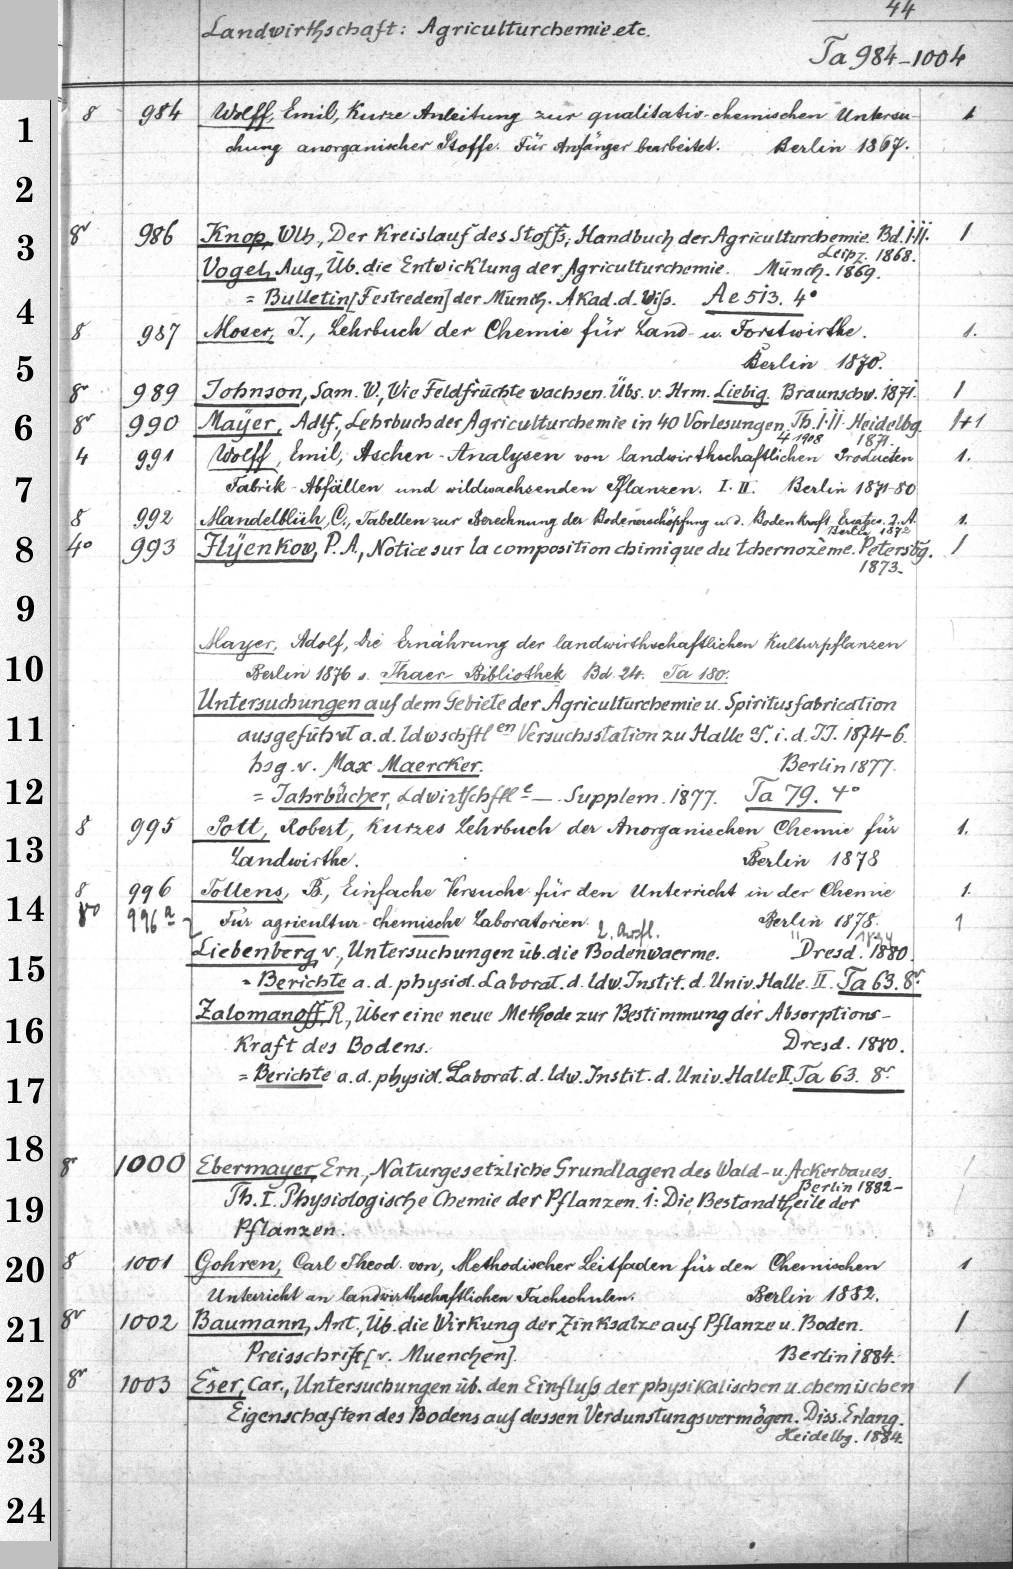 44
Landwirthschaft: Agriculturchemie etc.
Ta 984-1004
1 8 984 Wolff, Emil, Kurze Anleitung zur qualitativ-chemischen Untersu- 1
chung anorganischer Stoffe. Für Anfänger bearbeitet. Berlin 1867.
2
3 8° 986 Knop, Wlh., Der Kreislauf des Stoffs, Handbuch der Agriculturchemie. Bd. I.II. 1
Leipz. 1868.
Vogel, Aug., Üb. die Entwicklung der Agriculturchemie. Münch. 1869.
4 = Bulletin [Festreden] der Münch. Akad. d. Wiss. Ae 513. 4°
8 987 Moser, J., Lehrbuch der Chemie für Land- u. Forstwirthe. 1.
5 Berlin 1870.
8° 989 Johnson, Sam. W., Wie Feldfrüchte wachsen. Übs. v. Hrm. Liebig. Braunschw. 1871. 1
6 8° 990 Mayer, Adlf., Lehrbuch der Agriculturchemie in 40 Vorlesungen. Th. I.II. Heidelbg. 1+1
1908 1871.
4 991 Wolff, Emil, Aschen-Analysen von landwirthschaftlichen Producten 1.
7 Fabrik-Abfällen und wildwachsenden Pflanzen. I. II. Berlin 1871-80
8 992 Mandelblüh, C., Tabellen zur Berechnung der Bodenerschöpfung u. d. Bodenkraft-Ersatzes. 2. A. 1.
Berlin 1872
8 4° 993 Iljenkow, P. A., Notice sur la composition chimique du tchernozème. Petersbg. 1
1873.
9
Mayer, Adolf, Die Ernährung der landwirthschaftlichen Kulturpflanzen
10 Berlin 1876 s. Thaer-Bibliothek Bd. 24. Ta 180.
Untersuchungen auf dem Gebiete der Agriculturchemie u. Spiritusfabrication
11 ausgeführt a. d. ldwschftlen Versuchsstation zu Halle a/S. i. d. JJ. 1874-6.
hsg. v. Max Maercker. Berlin 1877.
12 = Jahrbücher, Ldwirtschftle — Supplem. 1877. Ta 79. 4°
8 995 Pott, Robert, Kurzes Lehrbuch der Anorganischen Chemie für 1.
13 Landwirthe. Berlin 1878
8 996 Tollens, B., Einfache Versuche für den Unterricht in der Chemie 1.
14 8° 996a Für agricultur-chemische Laboratorien. Berlin 1878. 1
2. Aufl. " 1894
Liebenberg, v., Untersuchungen üb. die Bodenwaerme. Dresd. 1880.
15 = Berichte a. d. physiol. Laborat. d. ldw. Instit. d. Univ. Halle. II. Ta 63. 8°
Zalomanoff, R., Über eine neue Methode zur Bestimmung der Absorptions-
16 Kraft des Bodens. Dresd. 1880.
17 = Berichte a. d. physiol. Laborat. d. ldw. Instit. d. Univ. Halle II. Ta 63. 8°
18
8° 1000 Ebermayer, Ern., Naturgesetzliche Grundlagen des Wald- u. Ackerbaues. 1
Berlin 1882-
19 Th. I. Physiologische Chemie der Pflanzen. 1: Die Bestandtheile der 1
Pflanzen.
20 8 1001 Gohren, Carl Theod. von, Methodischer Leitfaden für den Chemischen 1
Unterricht an landwirthschaftlichen Fachschulen. Berlin 1882.
21 8° 1002 Baumann, Ant., Üb. die Wirkung der Zinksalze auf Pflanze u. Boden. 1
Preisschrift [v. Muenchen]. Berlin 1884.
22 8° 1003 Eser, Car., Untersuchungen üb. den Einfluss der physikalischen u. chemischen 1
Eigenschaften des Bodens auf dessen Verdunstungsvermögen. Diss. Erlang.
23 Heidelbg. 1884.
24